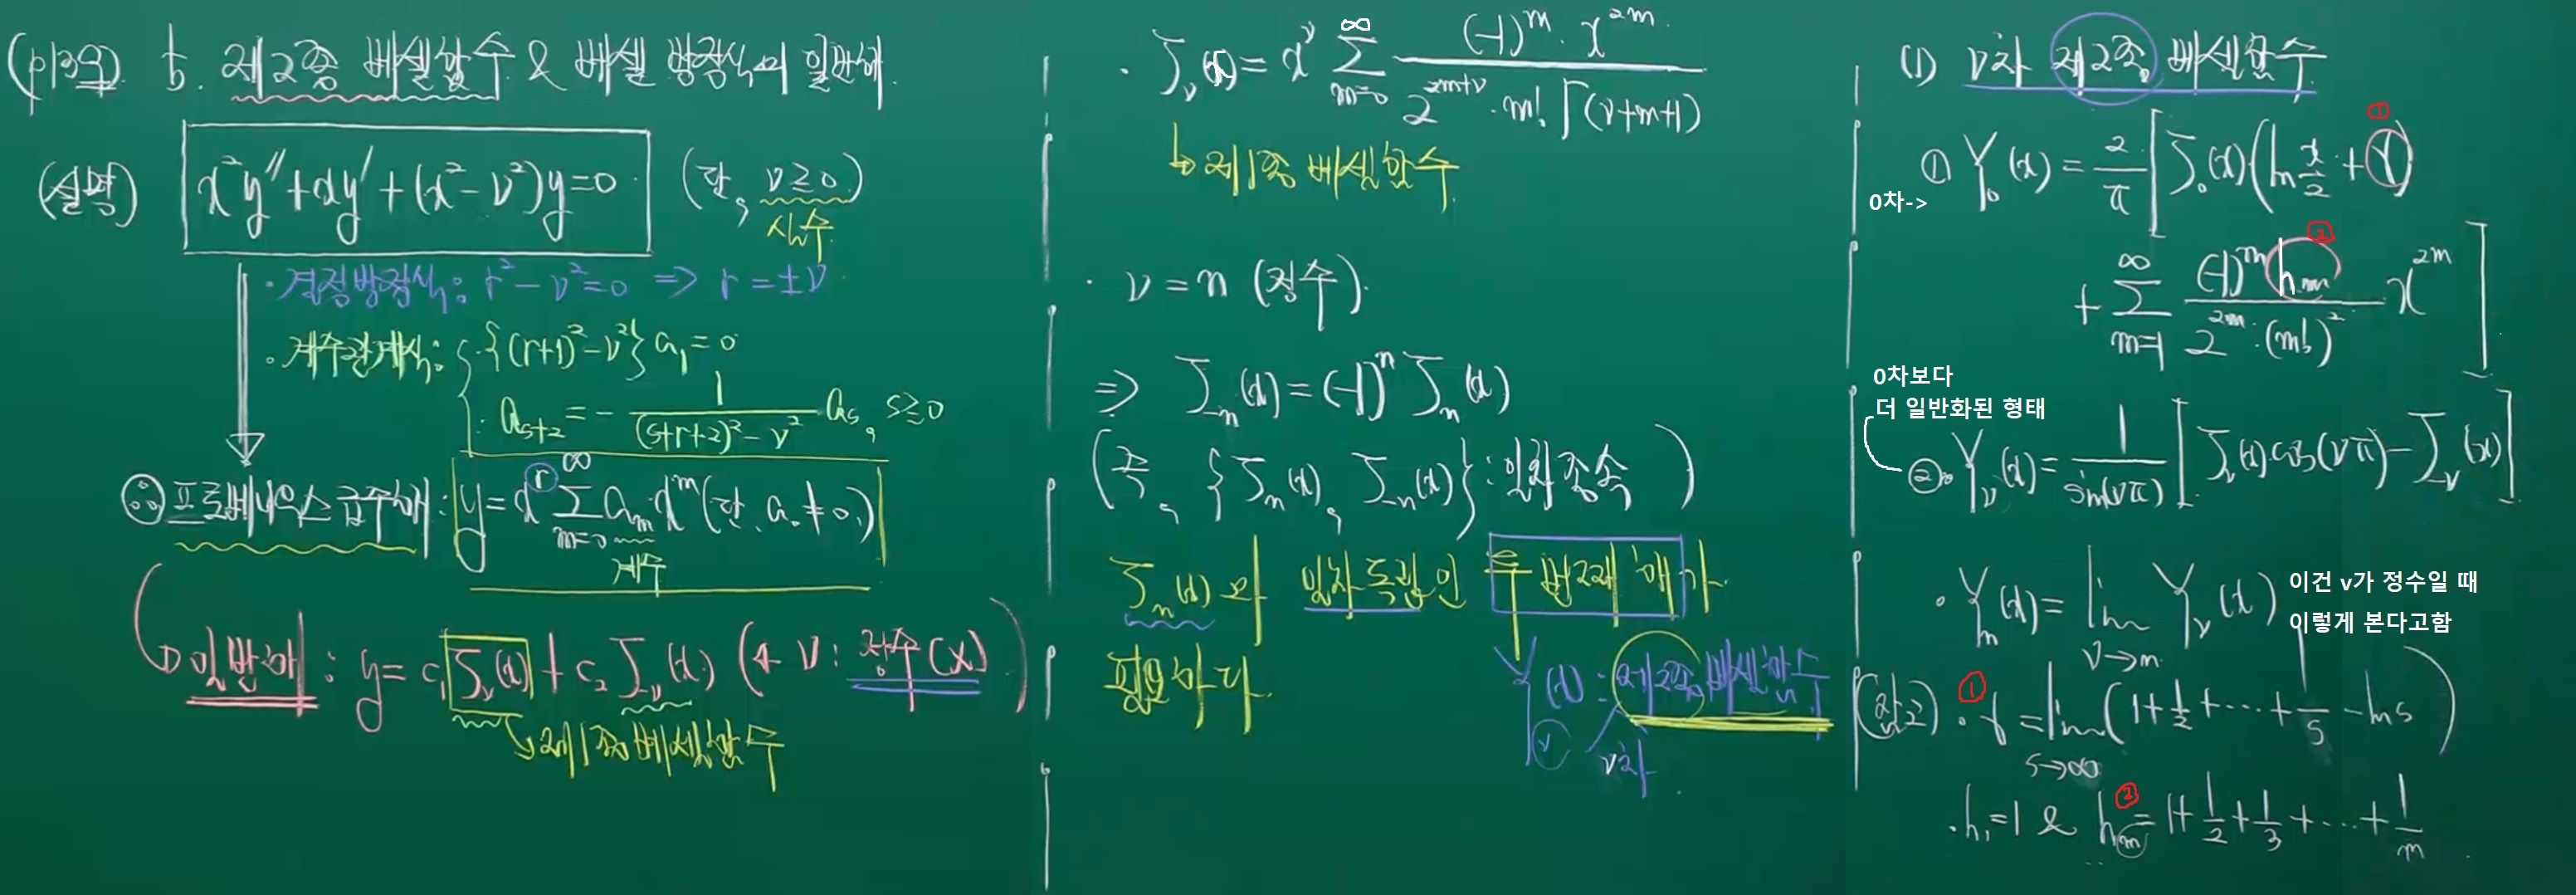 (p139위) b. 제2종 베셀함수 & 베셀 방정식의 일반해.
(설명) x²y″+xy′+(x²-ν²)y=0 (단, ν≥0)
실수
· 결정방정식: r²-ν²=0 => r=±ν
· 계수관계식: { · {(r+1)²-ν²}a₁=0
· a_{s+2} = - 1/((s+r+2)²-ν²) a_s, s≥0
∴ 프로베니우스 급수해: y=x^r ∑_{m=0}^{∞} a_m x^m (단, a₀≠0.)
계수
일반해: y= c₁J_ν(x)+c₂J_{-ν}(x) (← ν: 정수(X))
↳제1종 베셀함수
· J_ν(x)= x^ν ∑_{m=0}^{∞} (-1)^m·x^{2m} / (2^{2m+ν}·m!Γ(ν+m+1))
↳제1종 베셀함수
· ν=n (정수).
=> J_{-n}(x)=(-1)^n J_n(x)
(즉, {J_n(x), J_{-n}(x)}: 일차종속)
J_n(x)와 일차독립인 두 번째 해가
필요하다.
Y_ν(x): 제2종 베셀함수
ν차
(1) ν차 제2종 베셀함수
①
0차-> ① Y₀(x) = 2/π [J₀(x)(ln x/2 + γ)
②
+ ∑_{m=1}^{∞} (-1)^m h_m / (2^{2m}·(m!)²) x^{2m}]
0차보다
더 일반화된 형태
②· Y_ν(x)= 1/sin(νπ) [J_ν(x)·cos(νπ)-J_{-ν}(x)]
· Y_n(x)= lim_{ν→n} Y_ν(x) 이건 v가 정수일 때
이렇게 본다고함
(참2) ① · γ = lim_{s→∞} (1+1/2+⋯+1/s -ln s)
②
· h₁=1 & h_m=1+1/2+1/3+⋯+1/m